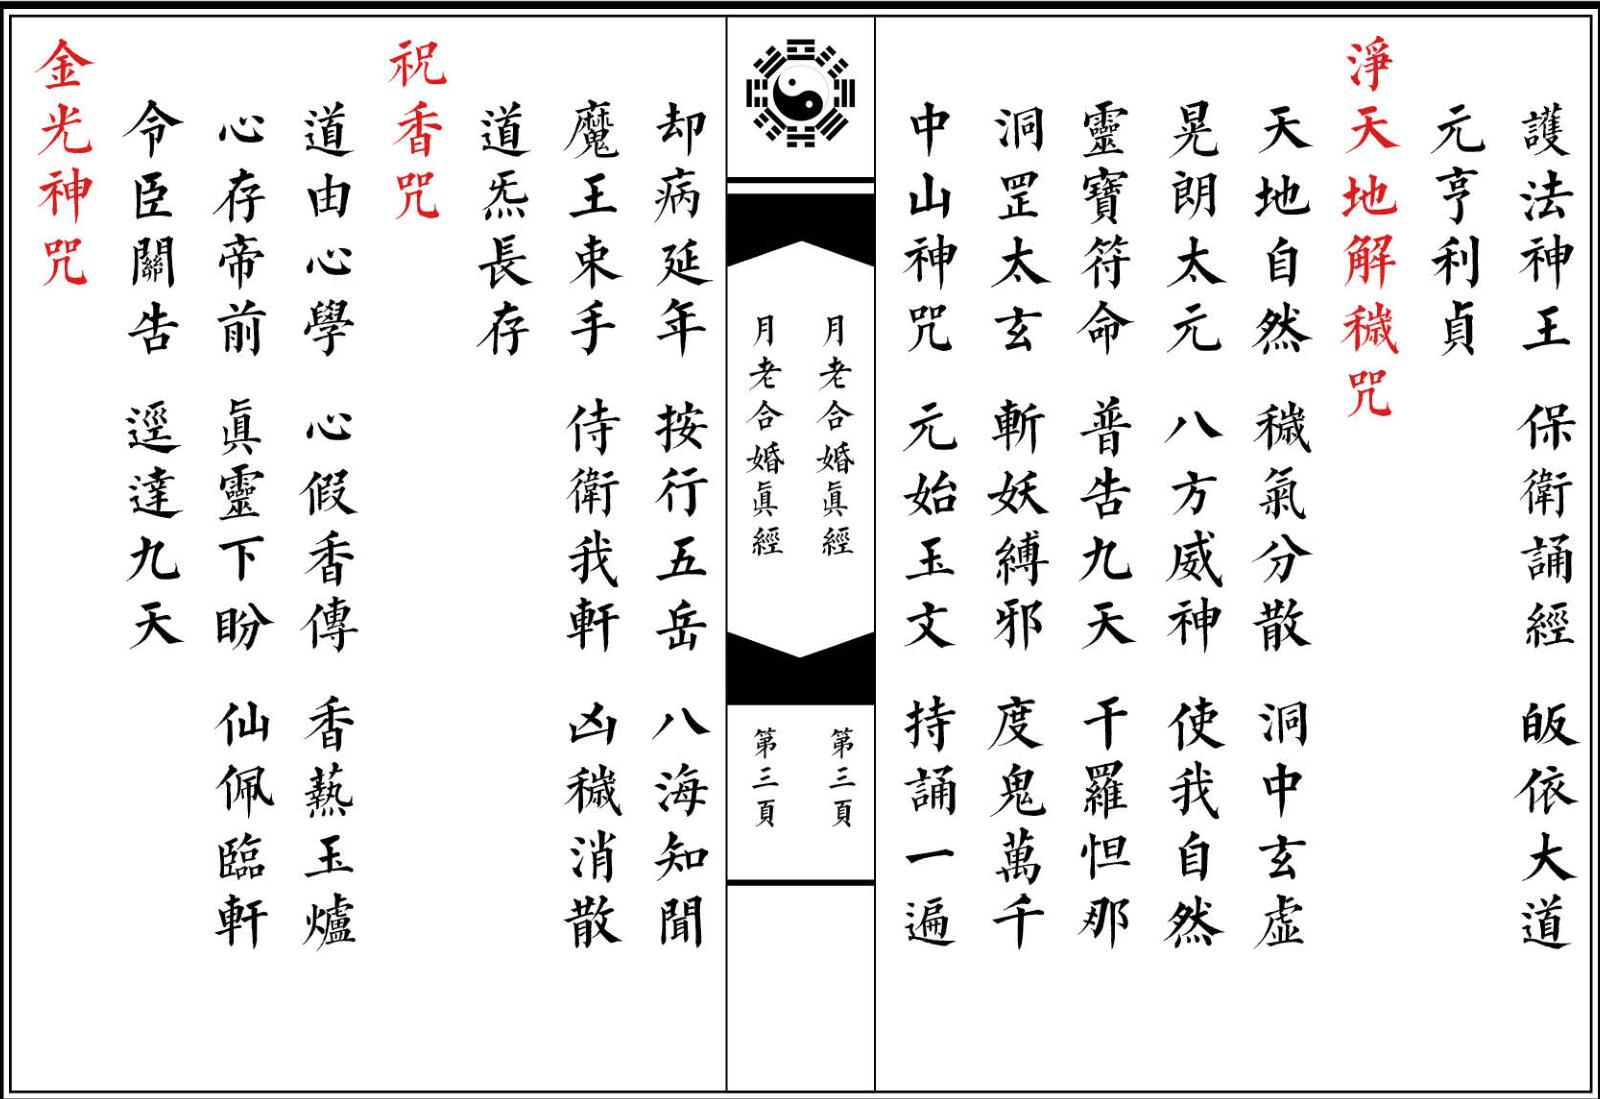 護法神王 保衛誦經 皈依大道
元亨利貞
淨天地解穢咒
天地自然 穢氣分散 洞中玄虛
晃朗太元 八方威神 使我自然
靈寶符命 普告九天 干羅怛那
洞罡太玄 斬妖縛邪 度鬼萬千
中山神咒 元始玉文 持誦一遍
月老合婚眞經 第三頁
月老合婚眞經 第三頁
却病延年 按行五岳 八海知聞
魔王束手 侍衛我軒 凶穢消散
道炁長存
祝香咒
道由心學 心假香傳 香爇玉爐
心存帝前 眞靈下盼 仙佩臨軒
令臣關告 逕達九天
金光神咒